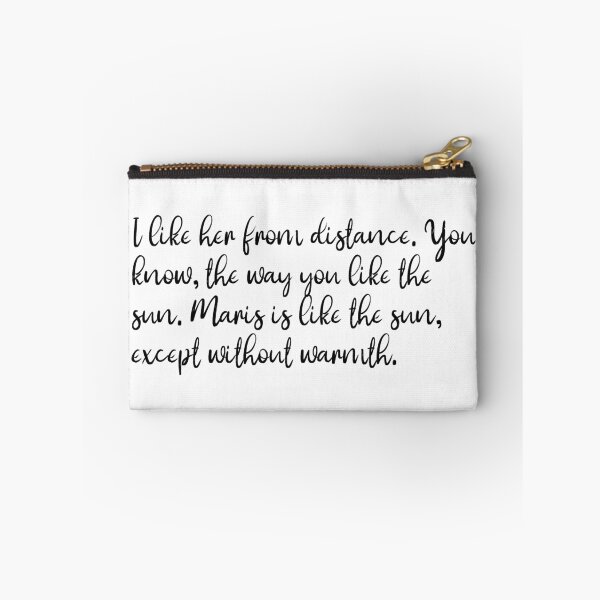 I like her from distance. You
know, the way you like the
sun. Maris is like the sun,
except without warmth.